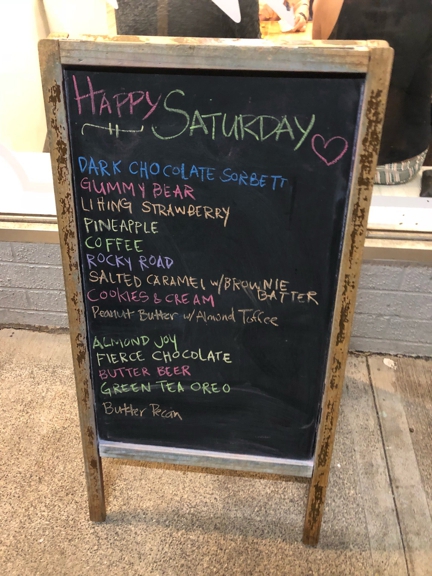 HAPPY SATURDAY
DARK CHOCOLATE SORBETT
GUMMY BEAR
LIHING STRAWBERRY
PINEAPPLE
COFFEE
ROCKY ROAD
SALTED CARAMEL W/BROWNIE
BATTER
COOKIES & CREAM
Peanut Butter w/Almond Toffee
ALMOND JOY
FIERCE CHOCOLATE
BUTTER BEER
GREEN TEA OREO
Butter Pecan